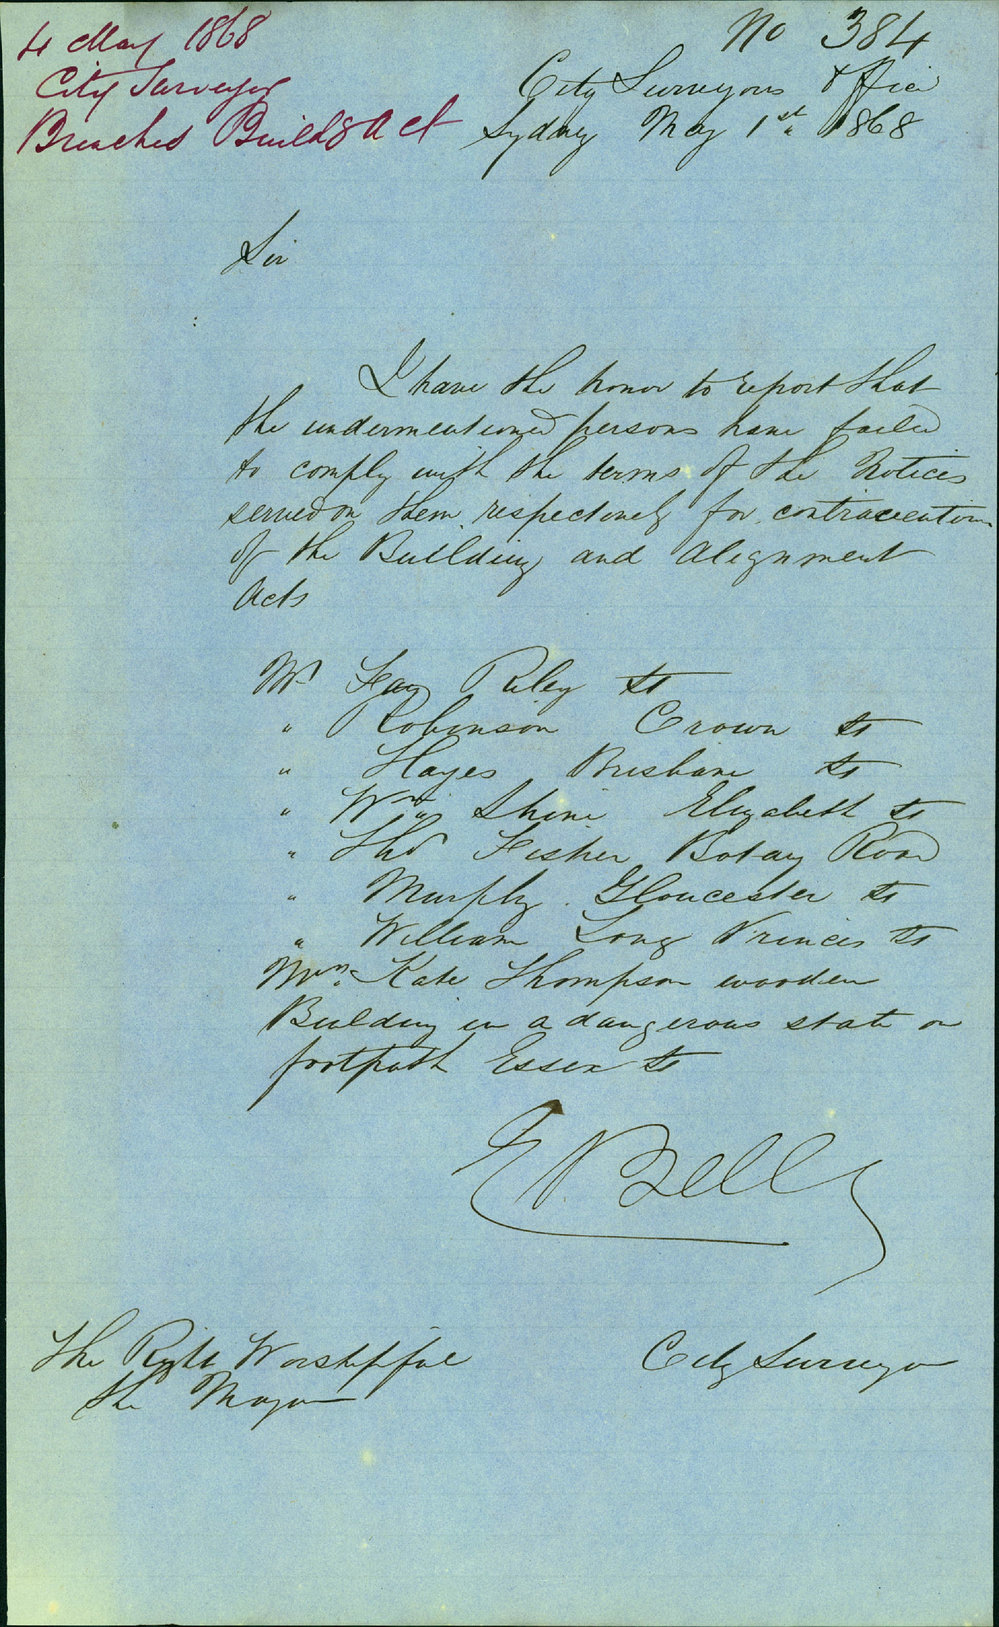 4 May 1868
City Surveyor
Breaches Buildg Act
No 384
City Surveyors Office
Sydney May 1st 1868
Sir
I have the honor to report that
the undermentioned persons have failed
to comply with the terms of the Notices
served on them respectively for contravention
of the Building and Alignment
Acts
Mr Fay Riley St
" Robinson Crown St
" Hayes Brisbane St
" Wm Shine Elizabeth St
" Thos Fisher Botany Road
" Murphy Gloucester St
" William Long Princes St
Kate Thompson wooden
Building in a dangerous state on
footpath Essex St
E Bell
City Surveyor
The Right Worshipful
the Mayor